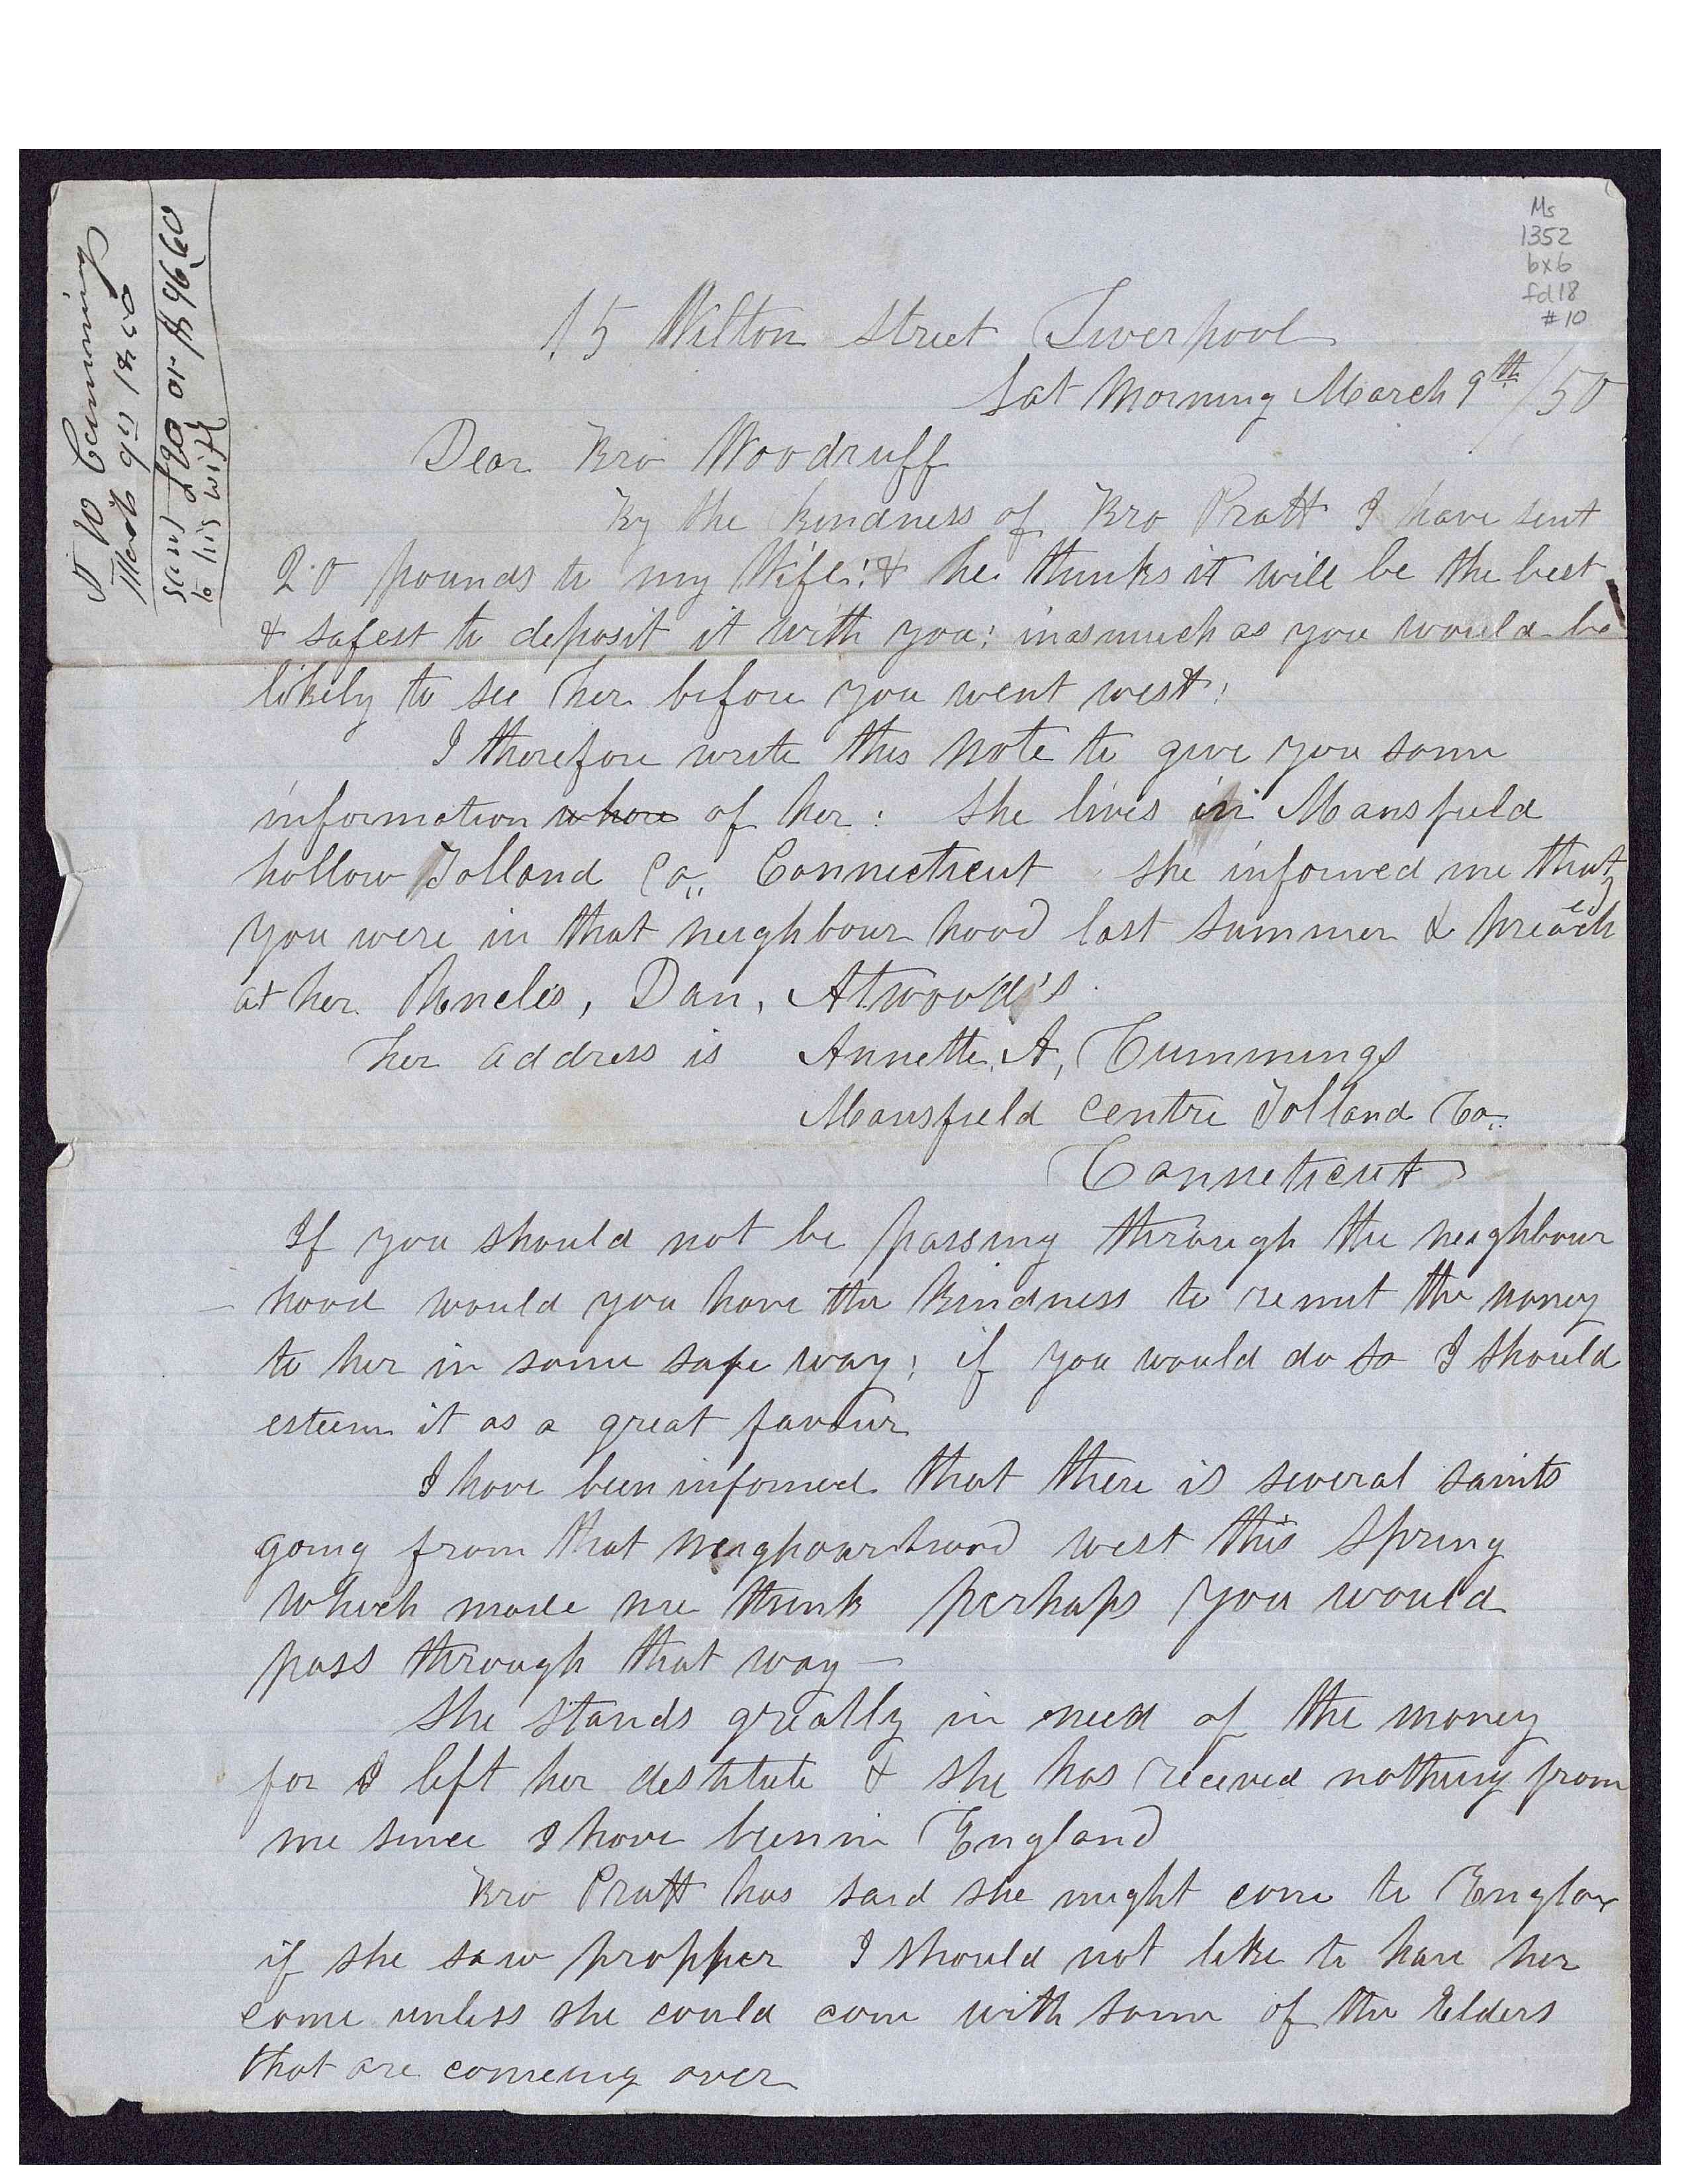 Ms
1352
bx6
fd18
#10
J W Cummings
March 9th 1850
Sent £20 or $96,60
to his wife
15 Wilton Street Liverpool
Sat Morning March 9th /50
Dear Bro Woodruff
By the kindness of Bro Pratt I have sent
20 pounds to my Wife: & he thinks it will be the best
& safest to deposit it with you: inasmuch as you would be
likely to see her before you went west:
I therefore write this note to give you some
information whore of her: She lives in Mansfield
hollow Tolland Co,, Connecticut she informed me that
you were in that neighbour hood last summer & preached
at her Uncles, Dan, Atwood's.
her address is Annette, A, Cummings
Mansfield Centre Tolland Co,,
Conneticut
If you should not be passing through the neighbour
- hood would you have the kindness to remit the money
to her in some safe way; if you would do so I should
esteem it as a great favour
I have been informed that there is several saints
going from that neighpourhood west this Spring
which made me think perhaps you would
pass through that way —
She stands greatly in need of the money
for I left her destitute & she has received nothing from
me since I have been in England
Bro Pratt has said she might come to Englan
if she saw propper I should not like to have her
come unless she could come with some of the Elders
that are comeing over